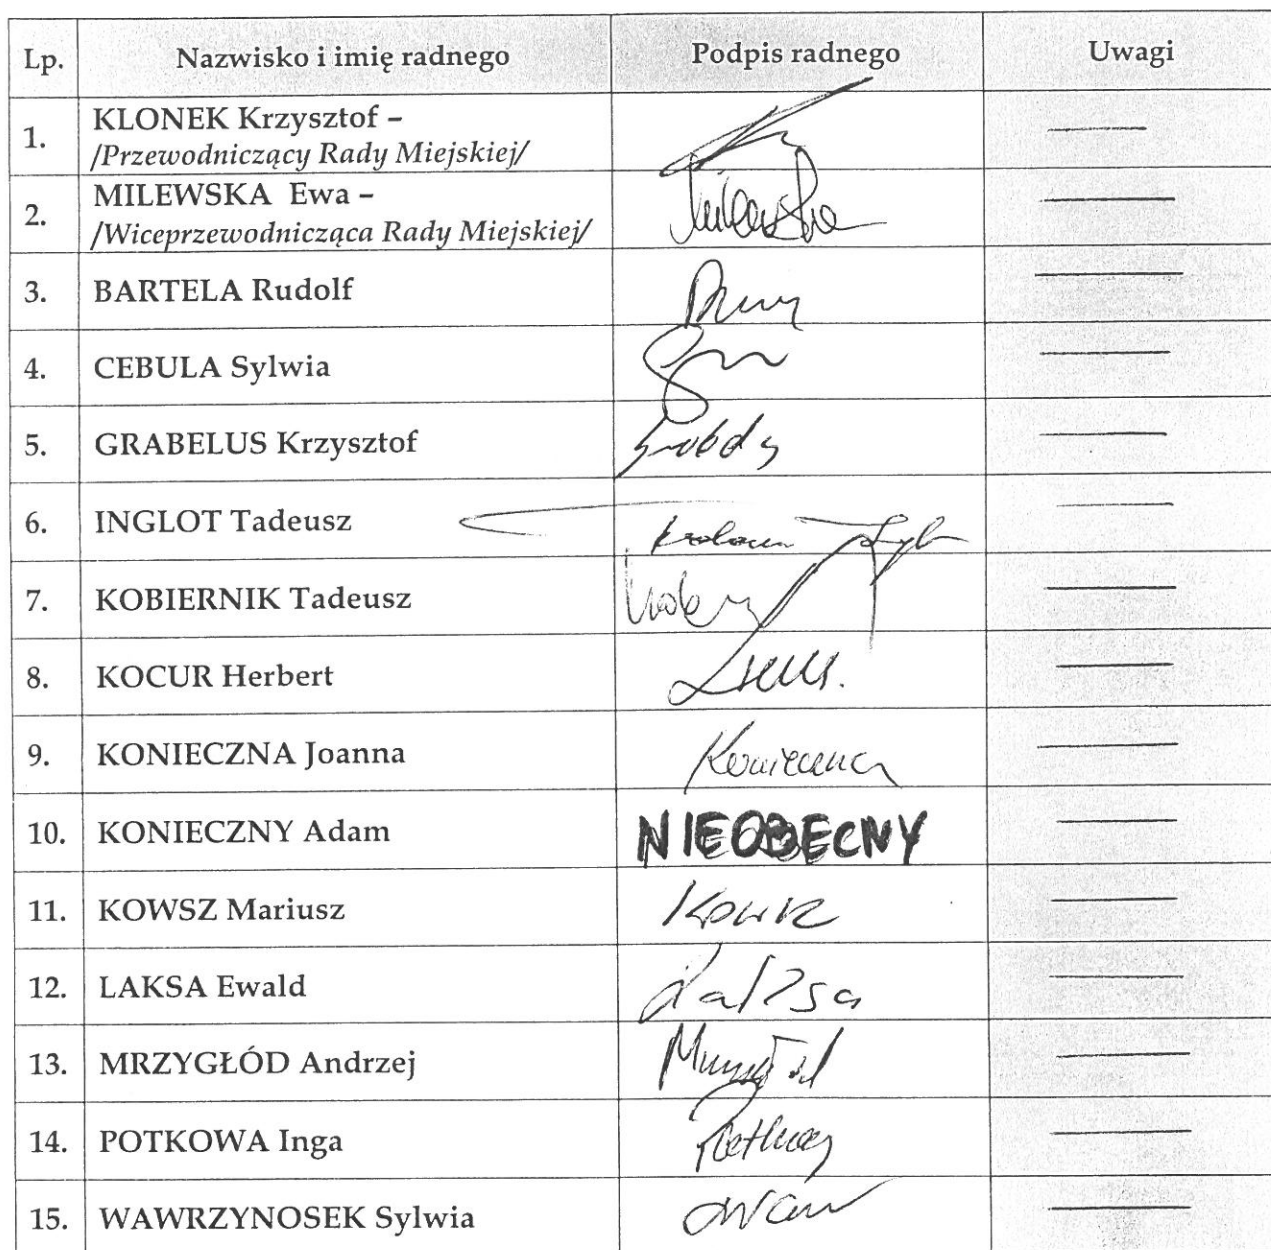 Lp. Nazwisko i imię radnego Podpis radnego Uwagi
1. KLONEK Krzysztof –
/Przewodniczący Rady Miejskiej/
2. MILEWSKA Ewa – Milewska
/Wiceprzewodnicząca Rady Miejskiej/
3. BARTELA Rudolf
4. CEBULA Sylwia
5. GRABELUS Krzysztof
6. INGLOT Tadeusz
7. KOBIERNIK Tadeusz
8. KOCUR Herbert
9. KONIECZNA Joanna Konieczna
10. KONIECZNY Adam NIEOBECNY
11. KOWSZ Mariusz
12. LAKSA Ewald
13. MRZYGŁÓD Andrzej
14. POTKOWA Inga
15. WAWRZYNOSEK Sylwia